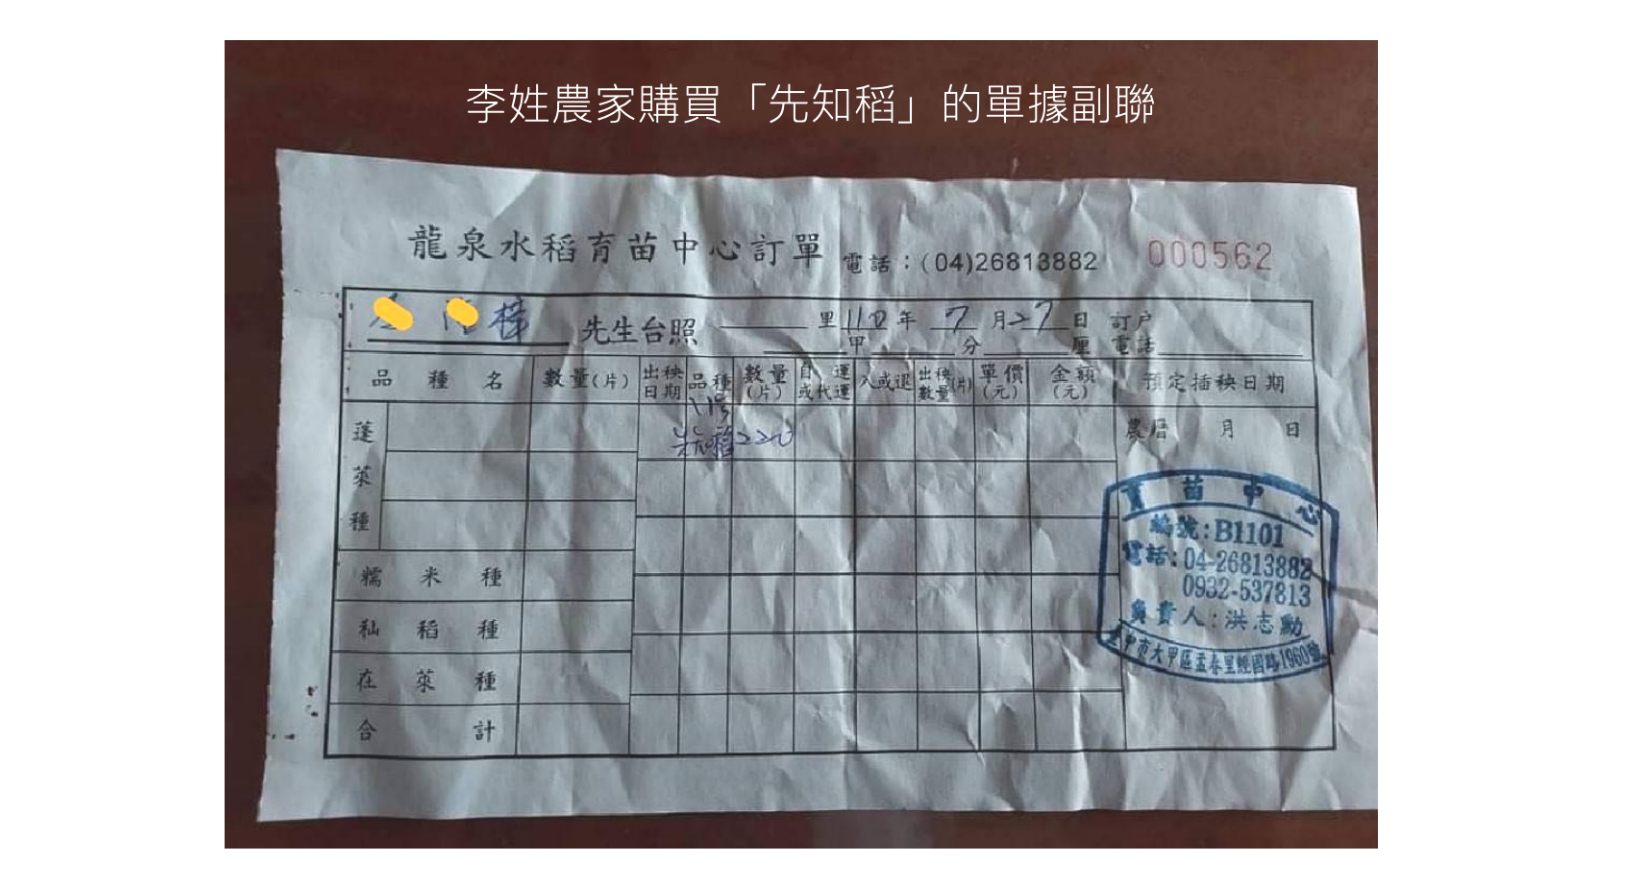 李姓農家購買「先知稻」的單據副聯
龍泉水稻育苗中心訂單 電話：(04)26813882 000562
樟 先生台照 里 110年 7月27日 訂戶
甲 分 厘 電話
品種名 數量(片) 出秧日期 品種 數量(片) 自運或代運 入或退 出秧數量(片) 單價(元) 金額(元) 預定插秧日期
11号
220
蓬萊種
農曆 月 日
糯米種
秈稻種
在萊種
合計
育苗中心
編號:B1101
電話:04-26813882
0932-537813
負責人:洪志勳
臺中市大甲區孟春里經國路1960號